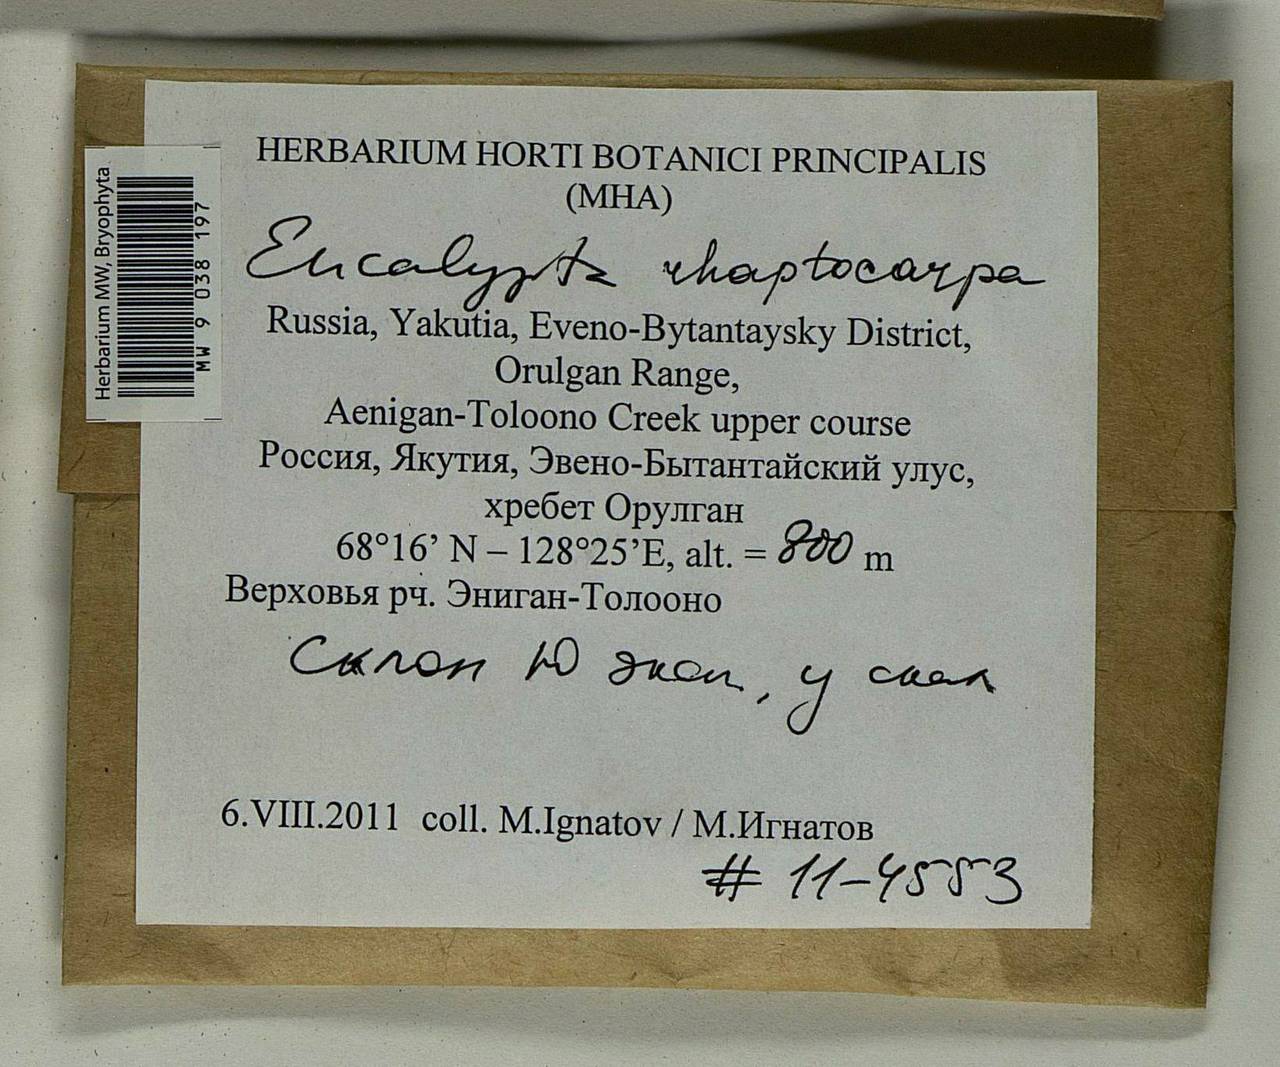 HERBARIUM HORTI BOTANICI PRINCIPALIS
(MHA)
Encalypta rhaptocarpa
Russia, Yakutia, Eveno-Bytantaysky District,
Orulgan Range,
Aenigan-Toloono Creek upper course
Россия, Якутия, Эвено-Бытантайский улус,
хребет Орулган
68°16’ N – 128°25’E, alt. = 800 m
Верховья рч. Эниган-Толооно
Склон Ю эксп., у скал
6.VIII.2011 coll. M.Ignatov / М.Игнатов
# 11-4553
Herbarium MW, Bryophyta
MW 9 038 197